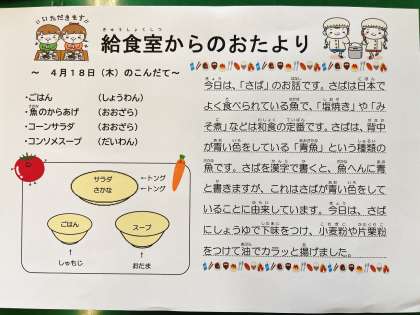 いただきます
給食室からのおたより
きゅうしょくしつ
～ 4月18日（木）のこんだて～
・ごはん （しょうわん）
・魚のからあげ （おおざら）
・コーンサラダ （おおざら）
・コンソメスープ （だいわん）
サラダ
さかな
←トング
←トング
ごはん
スープ
↑
しゃもじ
↑
おたま
今日は、「さば」のお話です。さばは日本で
よく食べられている魚で、「塩焼き」や「み
そ煮」などは和食の定番です。さばは、背中
が青い色をしている「青魚」という種類の
魚です。さばを漢字で書くと、魚へんに青
と書きますが、これはさばが青い色をして
いることに由来しています。今日は、さば
にしょうゆで下味をつけ、小麦粉や片栗粉
をつけて油でカラッと揚げました。